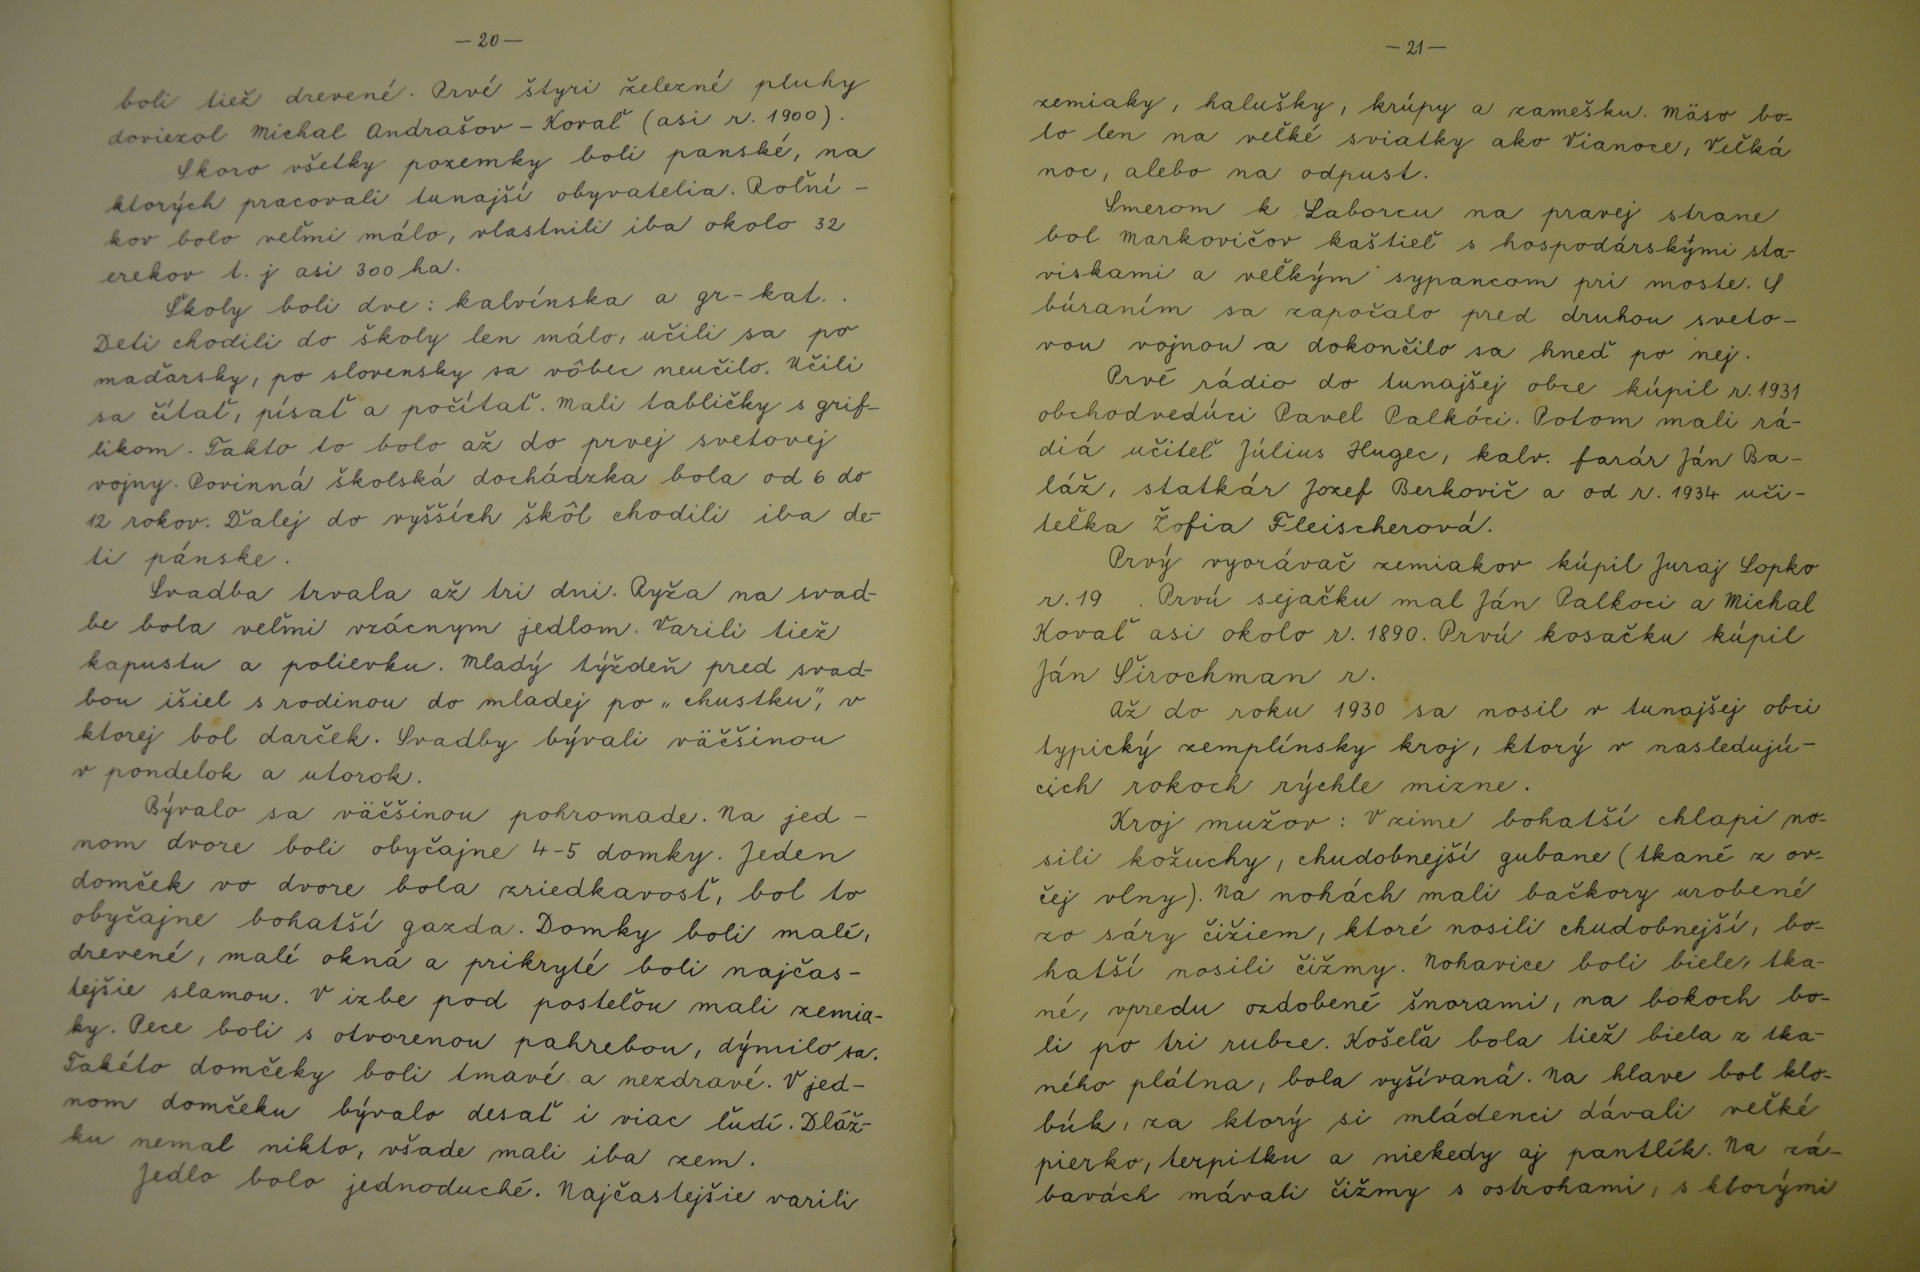 — 20 —
boli tiež drevené. Prvé štyri železné pluhy
doviezol Michal Andrašov – Kovaľ (asi r. 1900).
Skoro všetky pozemky boli panské, na
ktorých pracovali tunajší obyvatelia. Roľní –
kov bolo veľmi málo, vlastnili iba okolo 32
erekov t. j asi 300 ha.
Školy boli dve : kalvínska a gr–kat. .
Deti chodili do školy len málo, učili sa po
maďarsky, po slovensky sa vôbec neučilo. Učili
sa čítať, písať a počítať. Mali tabličky s grif-
likom. Takto to bolo až do prvej svetovej
vojny. Povinná školská dochádzka bola od 6 do
12 rokov. Ďalej do vyšších škôl chodili iba de-
ti pánske.
Svadba trvala až tri dni. Ryža na svad-
be bola veľmi vzácnym jedlom. Varili tiež
kapustu a polievku. Mladý týždeň pred svad-
bou išiel s rodinou do mladej po „chustku", v
ktorej bol darček. Svadby bývali väčšinou
v pondelok a utorok.
Bývalo sa väčšinou pohromade. Na jed –
nom dvore boli obyčajne 4–5 domky. Jeden
domček vo dvore bola zriedkavosť, bol to
obyčajne bohatší gazda. Domky boli malé,
drevené, malé okná a prikryté boli najčas –
tejšie slamou. V izbe pod posteľou mali zemia-
ky. Pece boli s otvorenou pahrebou, dýmilo sa.
Takéto domčeky boli tmavé a nezdravé. V jed–
nom domčeku bývalo desať i viac ľudí. Dláž-
ku nemal nikto, všade mali iba zem.
Jedlo bolo jednoduché. Najčastejšie varili
— 21 —
zemiaky, halušky, krúpy a zamešku. Mäso bo-
lo len na veľké sviatky ako Vianoce, Veľká
noc, alebo na odpust.
Smerom k Laborcu na pravej strane
bol Markovičov kaštieľ s hospodárskými sta-
viskami a veľkým sypancom pri moste. S
búraním sa započalo pred druhou sveto–
vou vojnou a dokončilo sa hneď po nej.
Prvé rádio do tunajšej obce kúpil r. 1931
obchodvedúci Pavel Palkóci. Potom mali rá-
diá učiteľ Július Hugec, kalv. farár Ján Ba–
láž, statkár Jozef Berkovič a od r. 1934 uči–
teľka Žofia Fleischerová.
Prvý vyorávač zemiakov kúpil Juraj Lopko
r. 19 . Prvú sejačku mal Ján Palkoci a Michal
Kovaľ asi okolo r. 1890. Prvú kosačku kúpil
Ján Širochman r.
Až do roku 1930 sa nosil v tunajšej obci
typický zemplínsky kroj, ktorý v nasledujú–
cich rokoch rýchle mizne.
Kroj mužov : V zime bohatší chlapi no-
sili kožuchy, chudobnejší gubane (tkané z ov-
čej vlny). Na nohách mali bačkory urobené
zo sáry čižiem, ktoré nosili chudobnejší, bo-
hatší nosili čižmy. Nohavice boli biele, tka-
né, vpredu ozdobené šnorami, na bokoch bo-
li po tri rubce. Košeľa bola tiež biela z tka–
ného plátna, bola vyšívaná. Na hlave bol klo-
búk, za ktorý si mládenci dávali veľké
pierko, terpitku a niekedy aj pantlík. Na zá-
bavách mávali čižmy s ostrohami, s ktorými